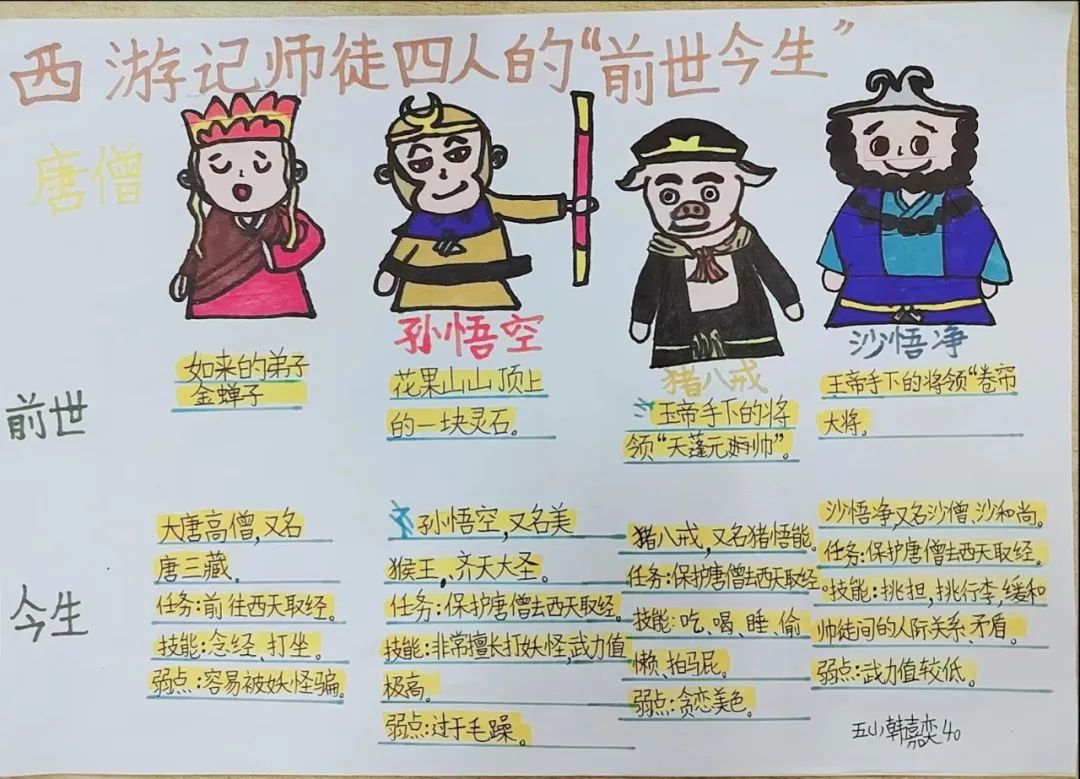 西游记师徒四人的“前世今生”
唐僧
孙悟空
猪八戒
沙悟净
前世
如来的弟子
金蝉子
花果山山顶上
的一块灵石。
玉帝手下的将
领“天蓬元帅”。
玉帝手下的将领“卷帘
大将。
今生
大唐高僧,又名
唐三藏。
任务:前往西天取经。
技能:念经、打坐。
弱点:容易被妖怪骗。
孙悟空,又名美
猴王、齐天大圣。
任务:保护唐僧去西天取经。
技能:非常擅长打妖怪,武力值
极高。
弱点:过于毛躁。
猪八戒,又名猪悟能。
任务:保护唐僧去西天取经
技能:吃、喝、睡、偷
懒、拍马屁。
弱点:贪恋美色。
沙悟净,又名沙僧、沙和尚。
任务:保护唐僧去西天取经。
技能:挑担,挑行李,缓和
师徒间的人际关系、矛盾。
弱点:武力值较低。
五山韩嘉奕40